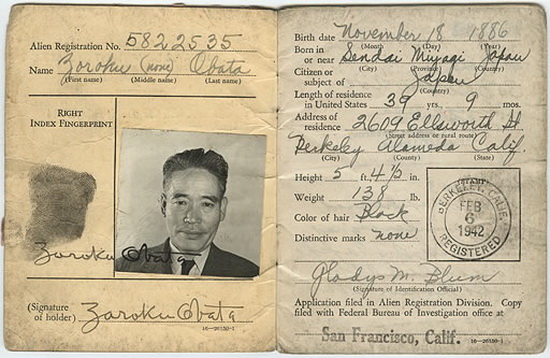 Alien Registration No. 5822535
Name Zoroku (none) Obata
(First name) (Middle name) (Last name)
RIGHT
INDEX FINGERPRINT
Zoroku Obata
(Signature
of holder) Zoroku Obata
16—26150-1
Birth date November 18 1886
(Month) (Day) (Year)
Born in
or near Sendai Miyagi Japan
(City) (Province) (Country)
Citizen or
subject of Japan
(Country)
Length of residence
in United States 39 yrs. 9 mos.
Address of
residence 2609 Ellsworth St
(Street address or rural route)
Berkeley Alameda Calif.
(City) (County) (State)
Height 5 ft. 4½ in.
Weight 138 lb.
Color of hair Black
Distinctive marks none
(STAMP)
BERKELEY, CALIF.
FEB
6
1942
REGISTERED
Gladys M. Blum
(Signature of Identification Official)
Application filed in Alien Registration Division. Copy
filed with Federal Bureau of Investigation office at
San Francisco, Calif.
16—26150-1